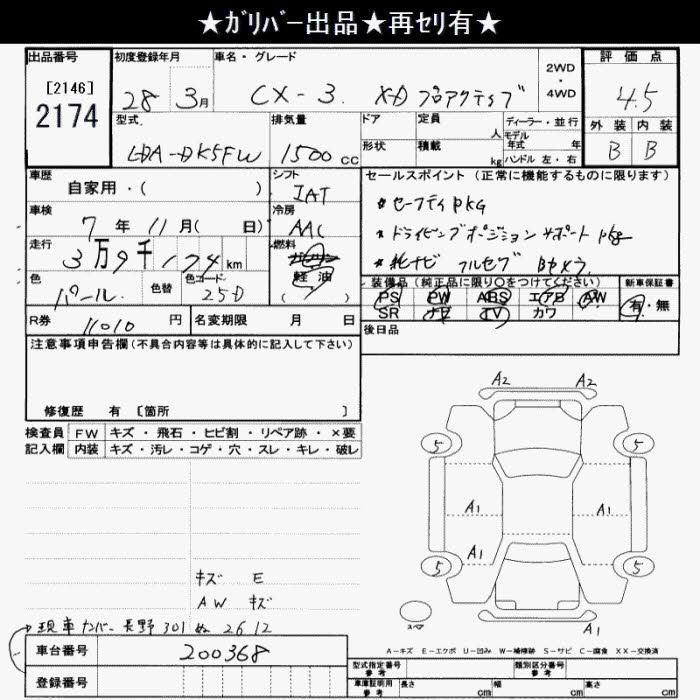 ★ｶﾞﾘﾊﾞｰ出品★再ｾﾘ有★
出品番号 初度登録年月 車名・グレード 2WD・4WD 評価点
[2146]
2174
28 3月 CX-3. XD プロアクティブ 4.5
型式 排気量 ドア 定員 人 ディーラー・並行 外装 内装
LDA-DK5FW 1500cc 形状 積載 kg モデル年式 年 B B
ハンドル 左・右
車歴 シフト セールスポイント (正常に機能するものに限ります)
自家用・( ) IAT
車検 冷房 *セーフティPKG
7年11月( 日) AAC *ドライビングポジションサポートpkg
走行 燃料
3万9千174km ガソリン *純ナビ フルセグ Bカメラ
色 色替 色コード 軽油 装備品 (純正品に限り○をつけてください) 新車保証書
パール 25D ( ) PS PW ABS エアB AW 有・無
SR ナビ TV カワ
R券 11010円 名変期限 月 日 後日品
注意事項申告欄(不具合内容等は具体的に記入して下さい)
修復歴 有 [箇所 ]
検査員 FW キズ・飛石・ヒビ割・リペア跡・×要
記入欄 内装 キズ・汚レ・コゲ・穴・スレ・キレ・破レ
A2 A2
5 5
A1 A1
A1
5 5
A1
スペア
キズ E
AW キズ
現車ナンバー長野301ぬ2612
車台番号 200368
登録番号
A－キズ E－エクボ U－凹み W－補修跡 S－サビ C－腐食 XX－交換済
型式指定番号 参考 類別区分番号 参考
車庫証明用 参考 長さ cm 幅 cm 高さ cm